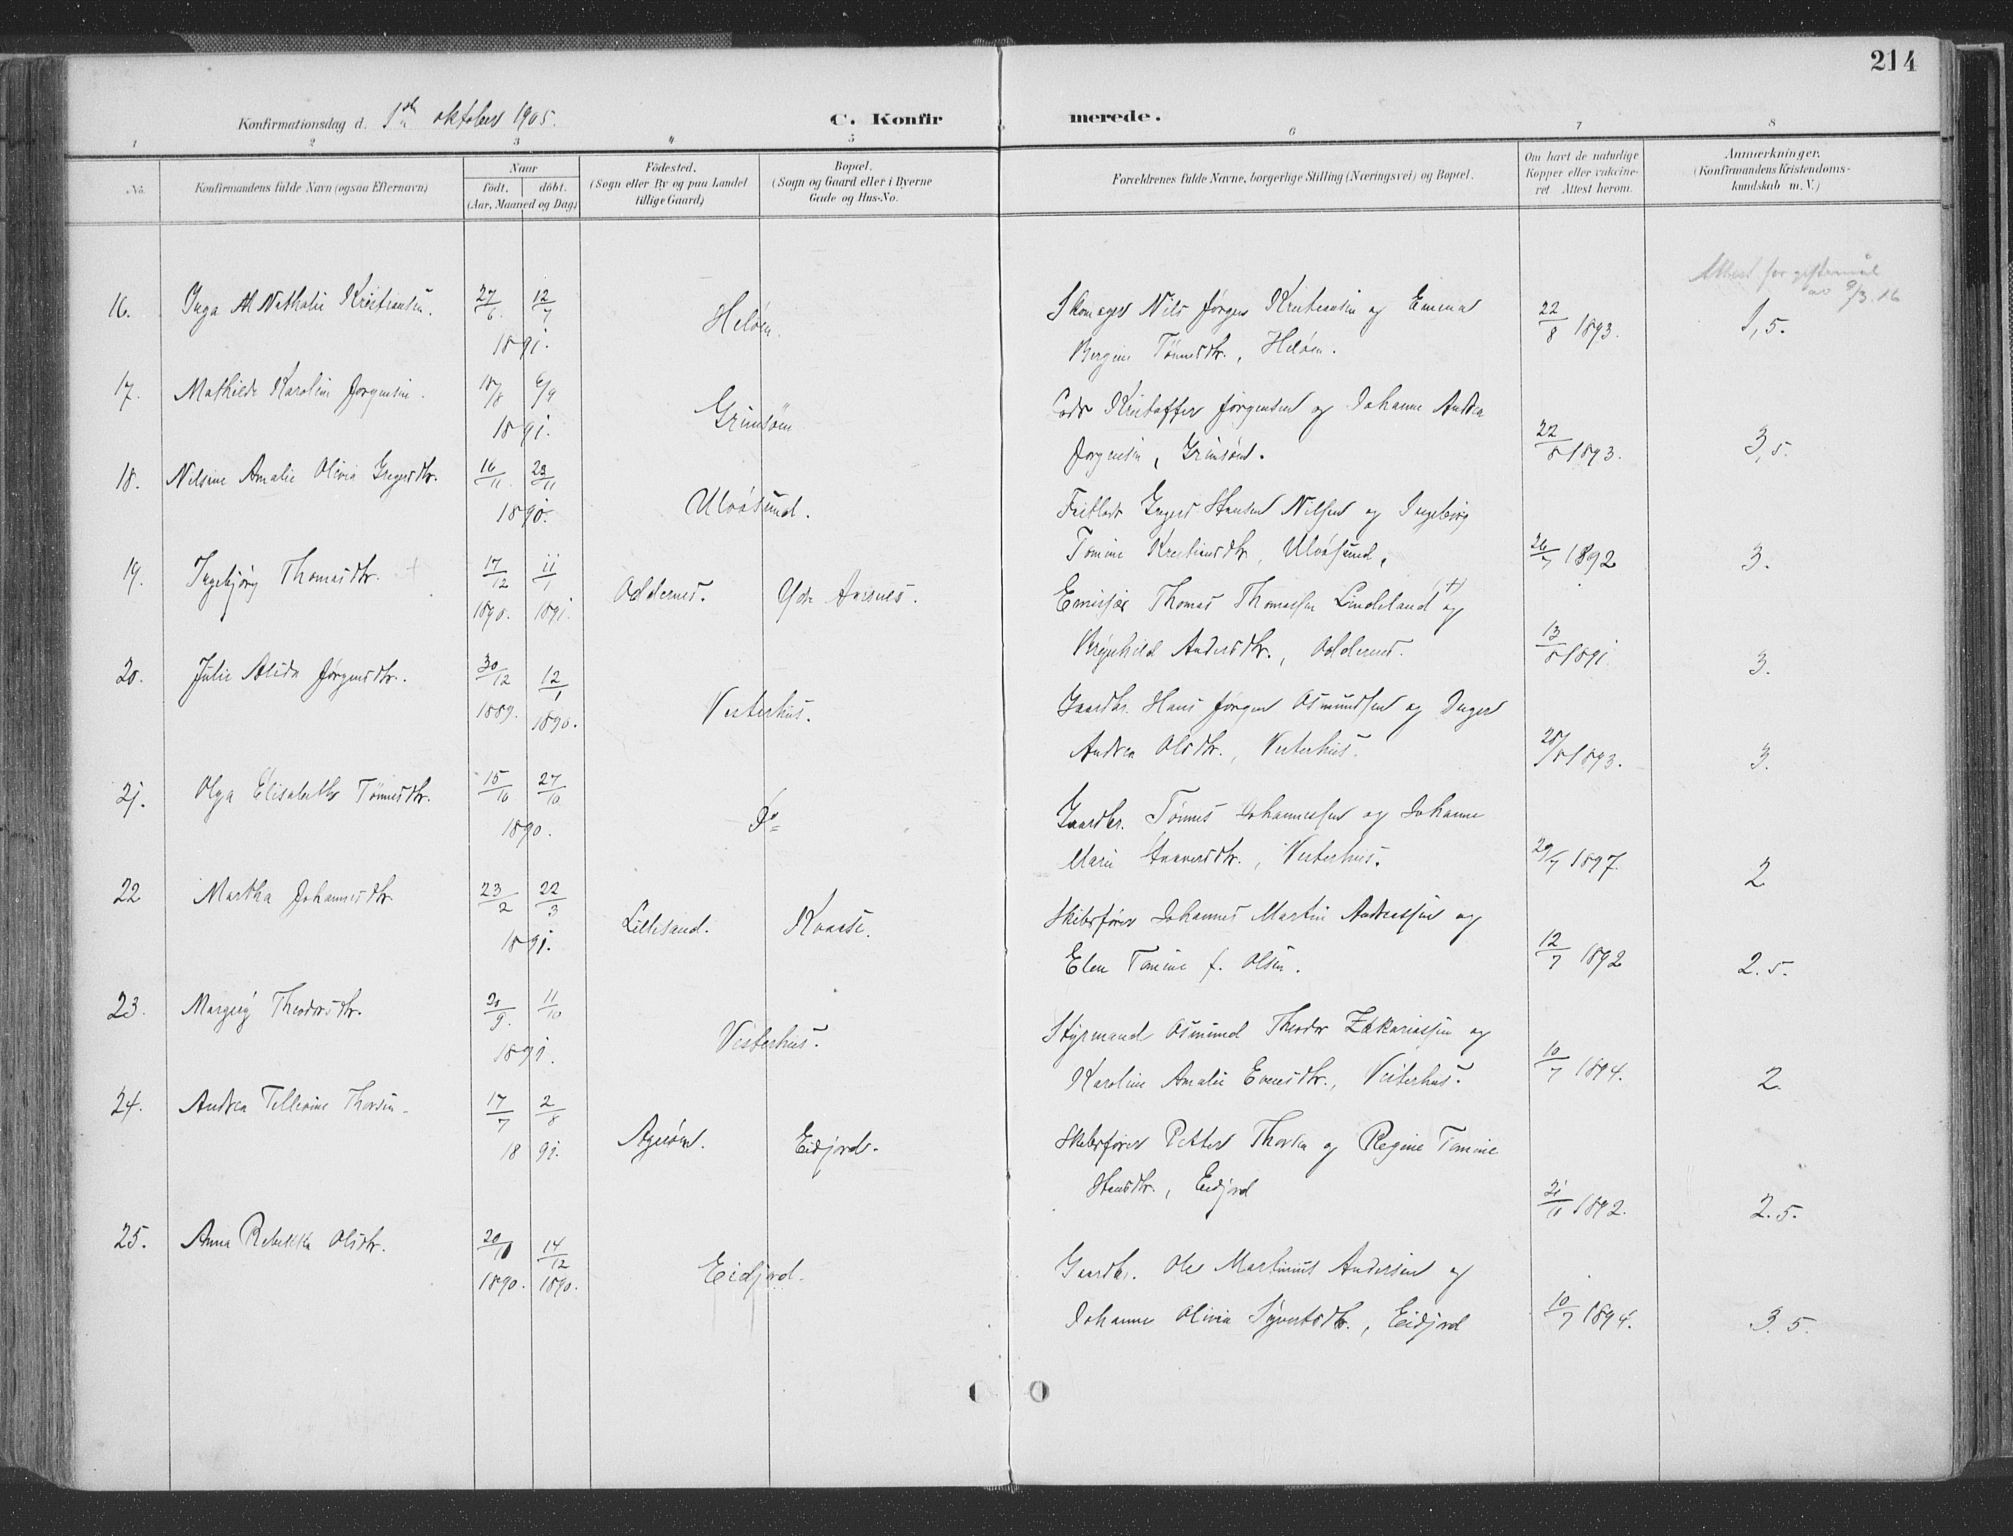 214
Konfirmationsdag d. 1ste oktober 1905.
C. Konfirmerede.
1 2 3 4 5 6 7 8
No. Konfirmandens fulde Navn (ogsaa Efternavn) Naar født. døbt. (Aar, Maaned og Dag) Fødested. (Sogn eller By og paa Landet tillige Gaard) Bopæl. (Sogn og Gaard eller i Byerne Gade og Hus-No. Forældrenes fulde Navne, borgerlige Stilling (Næringsvei) og Bopæl. Om havt de naturlige Kopper eller vakcineret Attest herom. Anmærkninger. (Konfirmandens Kristendomskundskab m. V.)
Attest for giftermål
av 9/3.16
16. Inga M Nathalie Kristiansen. 27/6 12/7 1891. Heløen. Skomager Nils Jørgen Kristiansen og Emma
Bergine Tønnesdtr., Heløen. 22/8 1893. 1,5.
17. Mathilde Karoline Jørgensen. 18/8 6/9 1891. Grimsøen Kristoffer Jørgensen og Johanne Andrea
Jørgensen, Grimsøen. 22/8 1893. 3,5.
18. Nilsine Amalie Olivia Gregersdtr. 16/11. 23/11 1890. Ulvøsund. Hansen Nilsen og Ingeborg
Tomine Kristiansdtr., Ulvøsund. 26/7 1892 3.
19. Ingebjørg Thomasdtr. 17/12 1890. 11/1 1891. Oddernes. Ydre Aarsnes. Emissær Thomas Thomassen Lindeland +) og
Brynhild Andersdtr., Oddernes. 13/8 1891. 3.
20. Julie Alida Jørgensdtr. 30/12 1889. 12/1 1890. Vesterhus. Gaardbr. Hans Jørgen Osmundsen og Inger
Andrea Olsdtr., Vesterhus. 28/8 1893. 3.
21. Olga Elisabeth Tønnesdtr. 15/10 27/10 1890. Do Gaardbr. Tønnes Johannessen og Johanne
Marie Gunnersdtr., Vesterhus. 29/7 1897. 2
22 Martha Johannesdtr. 23/2 22/3 1891. Lillesand. Kvaase. Skibsfører Johannes Martin Andreassen og
Elen Tomine f. Olsen. 12/7 1892 2.5.
23. Theodorsdtr. 20/9. 11/10 1891. Vesterhus. Styrmand Osmund Theodor Zakariassen og
Karoline Amalie Evensdtr., Vesterhus. 10/7 1894. 2.
24. Andrea Tellevine Thorsen. 17/7 2/8 1891. Agerøen. Eidjord. Skibsfører Petter Thorsen og Regine Tomine
Hansdtr., Eidjord 21/11 1892. 2.5.
25. Anna Rebekka Olsdtr. 20/11 1890. 14/12 1890. Eidjord. Gaardbr. Ole Martinius Andersen og
Johanne Olivia Syvertsdtr., Eidjord 10/7 1894. 3.5.